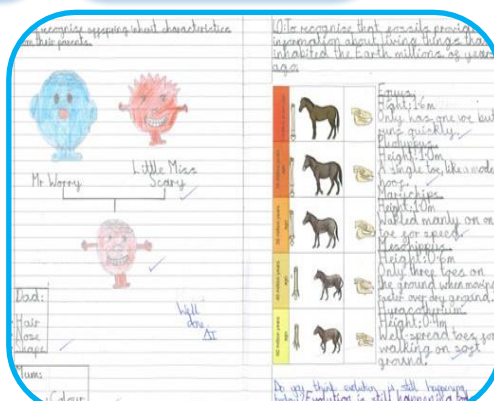 recognise offspring inherit characteristics
from their parents.
Mr Worry
Little Miss
Scary
Well
done
Dad:
Hair
Nose
Shape
Mum:
Colour
L.O: To recognise that fossils provide
information about living things that
inhabited the Earth millions of years
ago.
Equus
Hight: 1.6m
Only has one toe but
runs quickly.
Height: 1.0m
A single toe, like a modern
hoof.
Height: 1.0m
Walked mainly on one
toe for speed.
Height: 0.6m
Only three toes on
the ground when moving
faster over dry ground.
Height: 0.4m
Well-spread toes for
walking on soft
ground.
Do you think evolution is still happening
Evolution is still happening